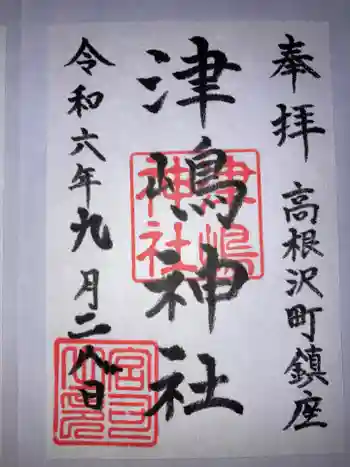 奉拝 高根沢町鎮座
津嶋神社
令和六年九月二八日
津嶋神社